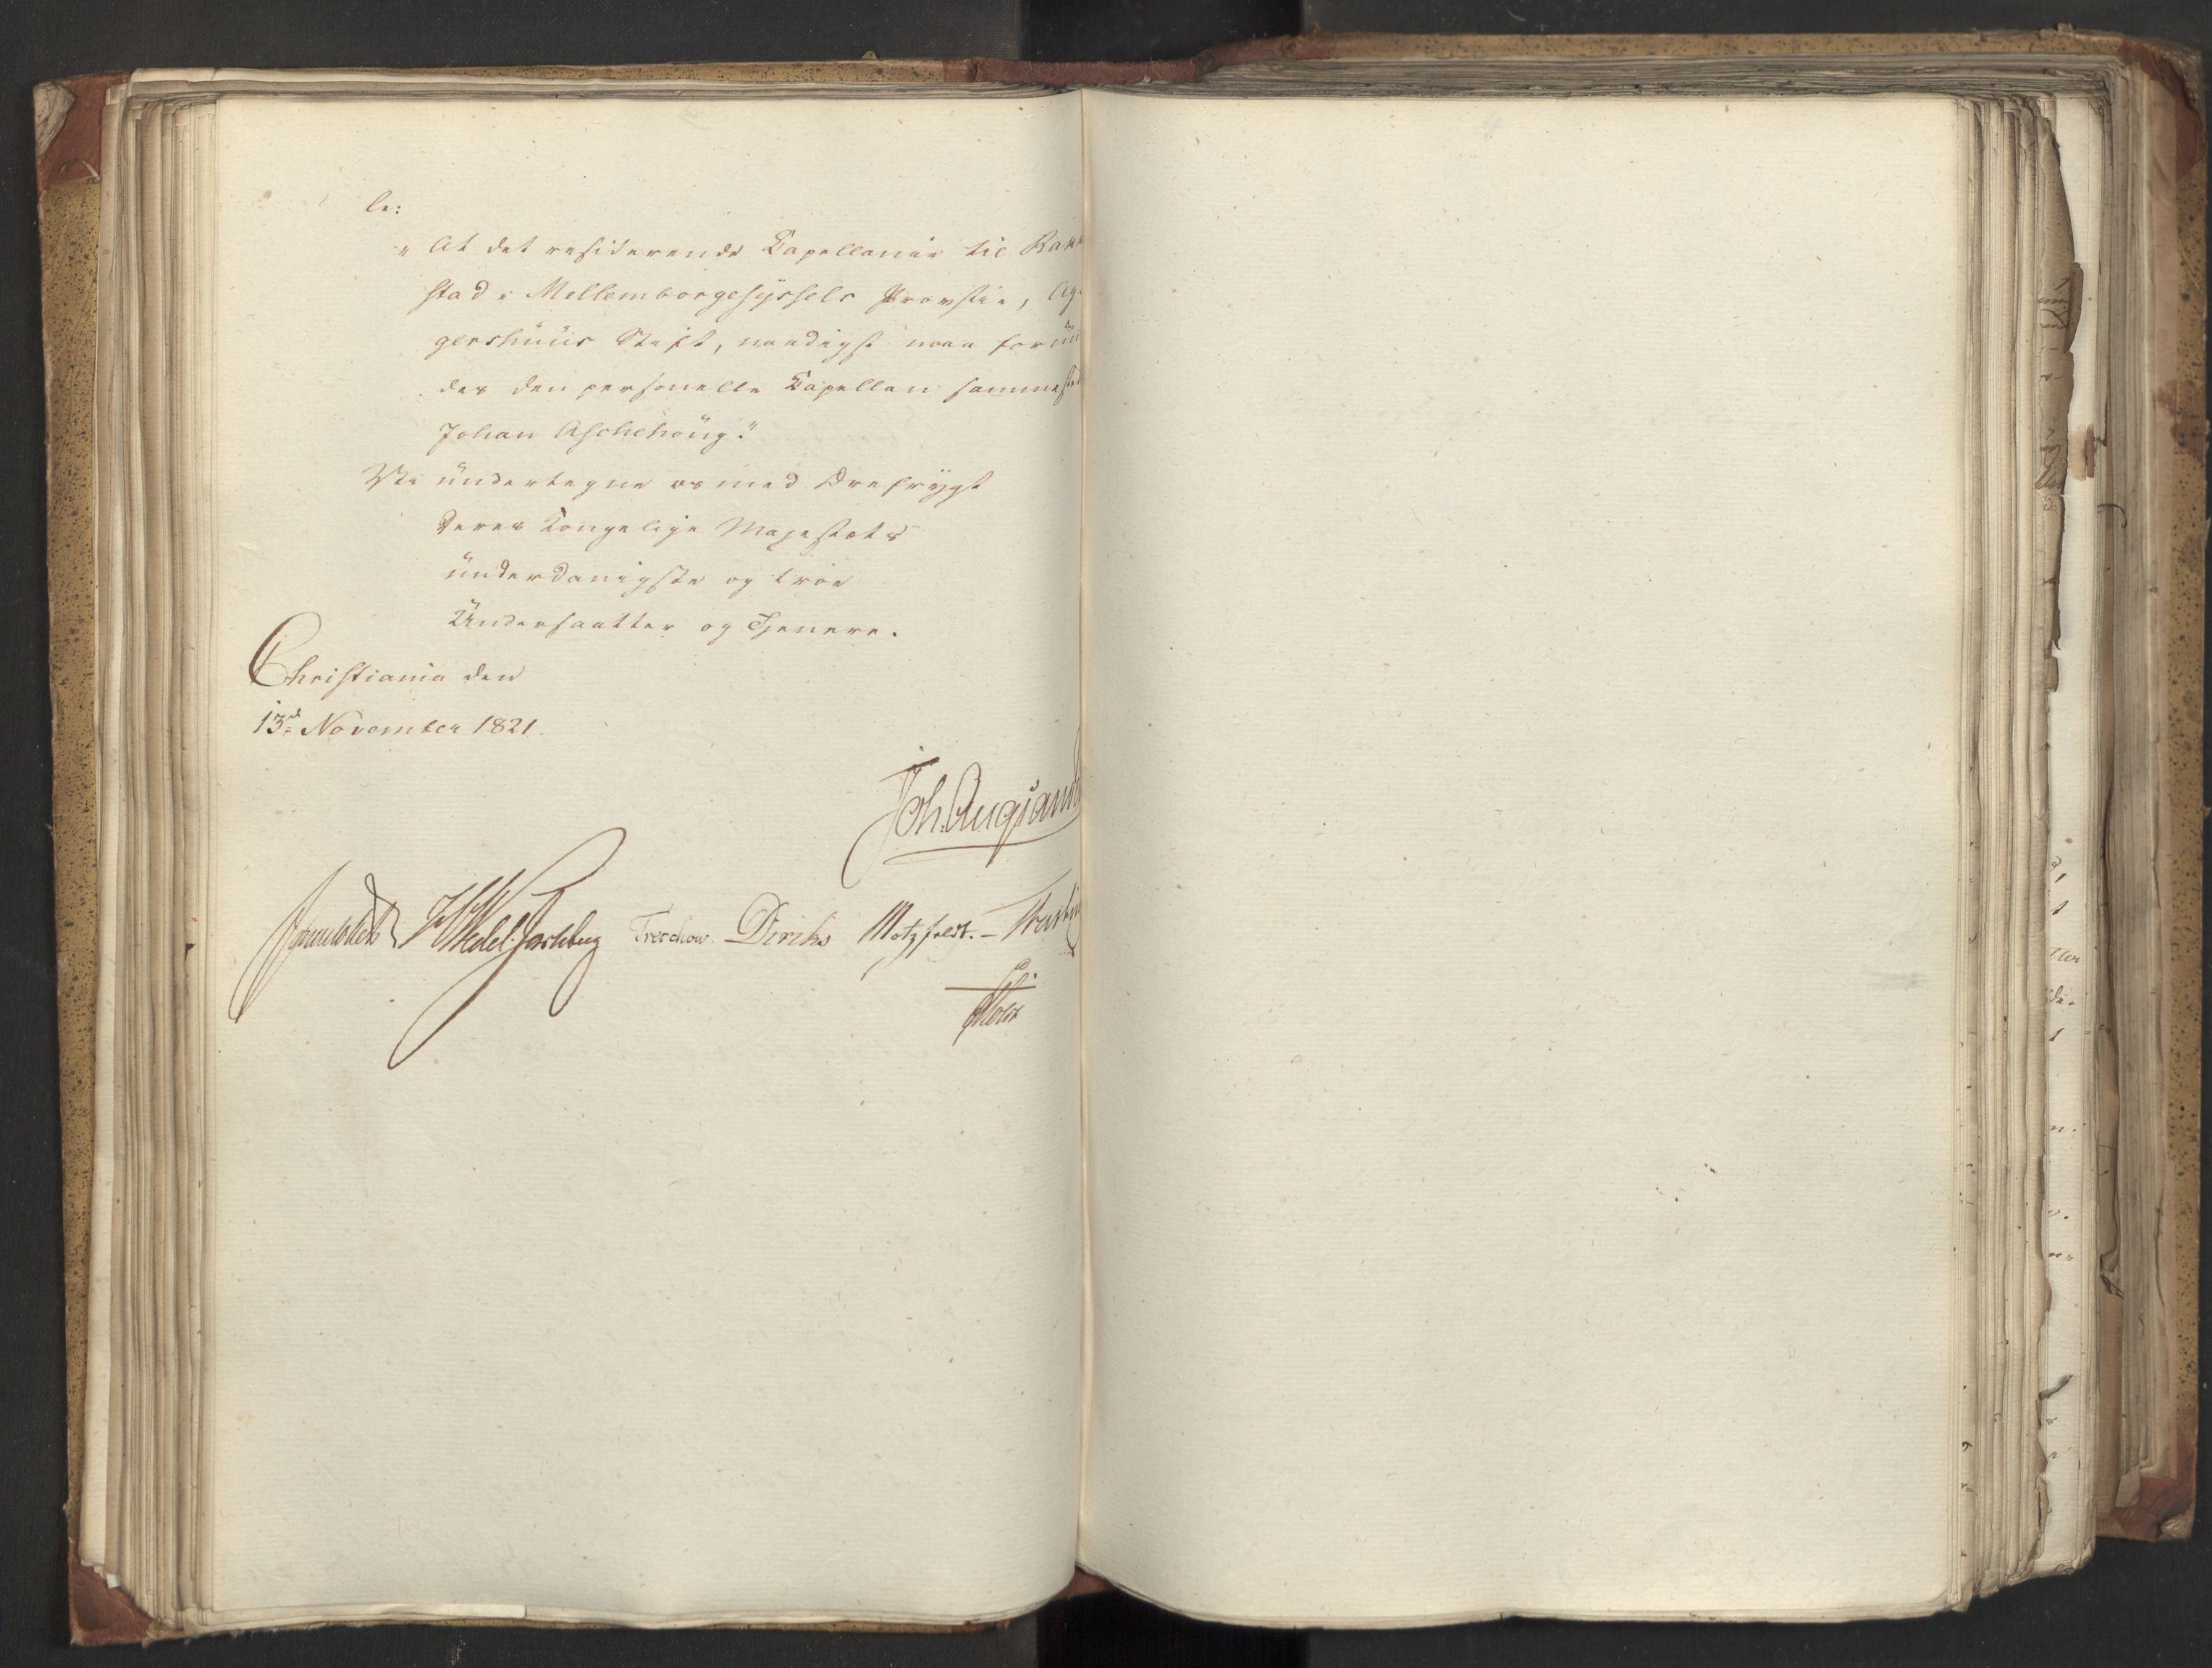 le:
"At det residerende Capellanie til Rakk
stad i Mellemborgesyssels Provstie, Ag-
gershuus Stift, naadigst maa forun
des den personelle Capellan sammested
Johan Aschehoug."
Vi undertegne os med Ærefrygt
Deres Kongelige Majestæts
underdanigste og troe
Undersaatter og Tjenere.
Christiania den
13de November 1821.
Joh. Aug. Sand
Sommerhielm HWedel-Jarlsberg Treschow. Diriks Motzfeldt. - Fasting
Holst